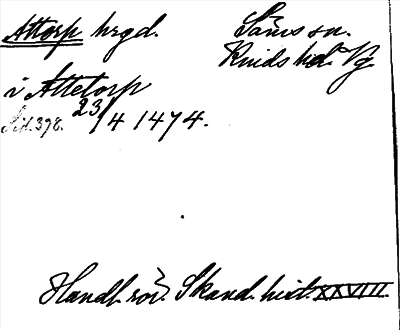 Attorp hrgd.
Säms sn.
Kinds hd. Vg.
i Attetorp
Sid. 398. 23/4 1474.
Handl. rör. Skand. hist. XXVIII.